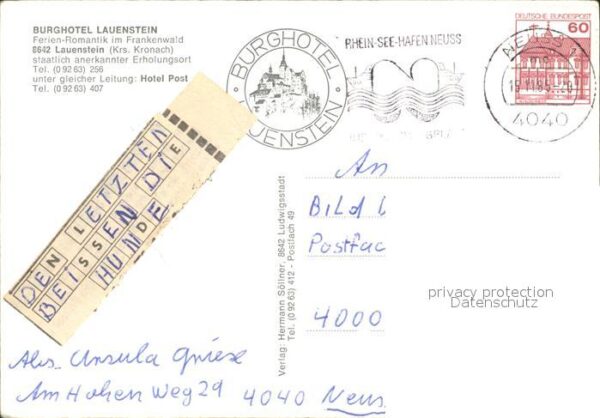 BURGHOTEL LAUENSTEIN
Ferien-Romantik im Frankenwald
8642 Lauenstein (Krs. Kronach)
staatlich anerkannter Erholungsort
Tel. (0 92 63) 256
unter gleicher Leitung: Hotel Post
Tel. (0 92 63) 407
· BURGHOTEL ·
LAUENSTEIN
RHEIN-SEE-HAFEN NEUSS
DEUTSCHE BUNDESPOST
60
NEUSS 1
4040
DEN LETZTEN
BEISSEN DIE
HUNDE
Verlag: Hermann Söllner, 8642 Ludwigsstadt
Tel. (0 92 63) 412 - Postfach 49
An
Bild
Postfac
4000
privacy protection
Datenschutz
Abs. Ursula Griese
Am Hohen Weg 29
4040 Neuss